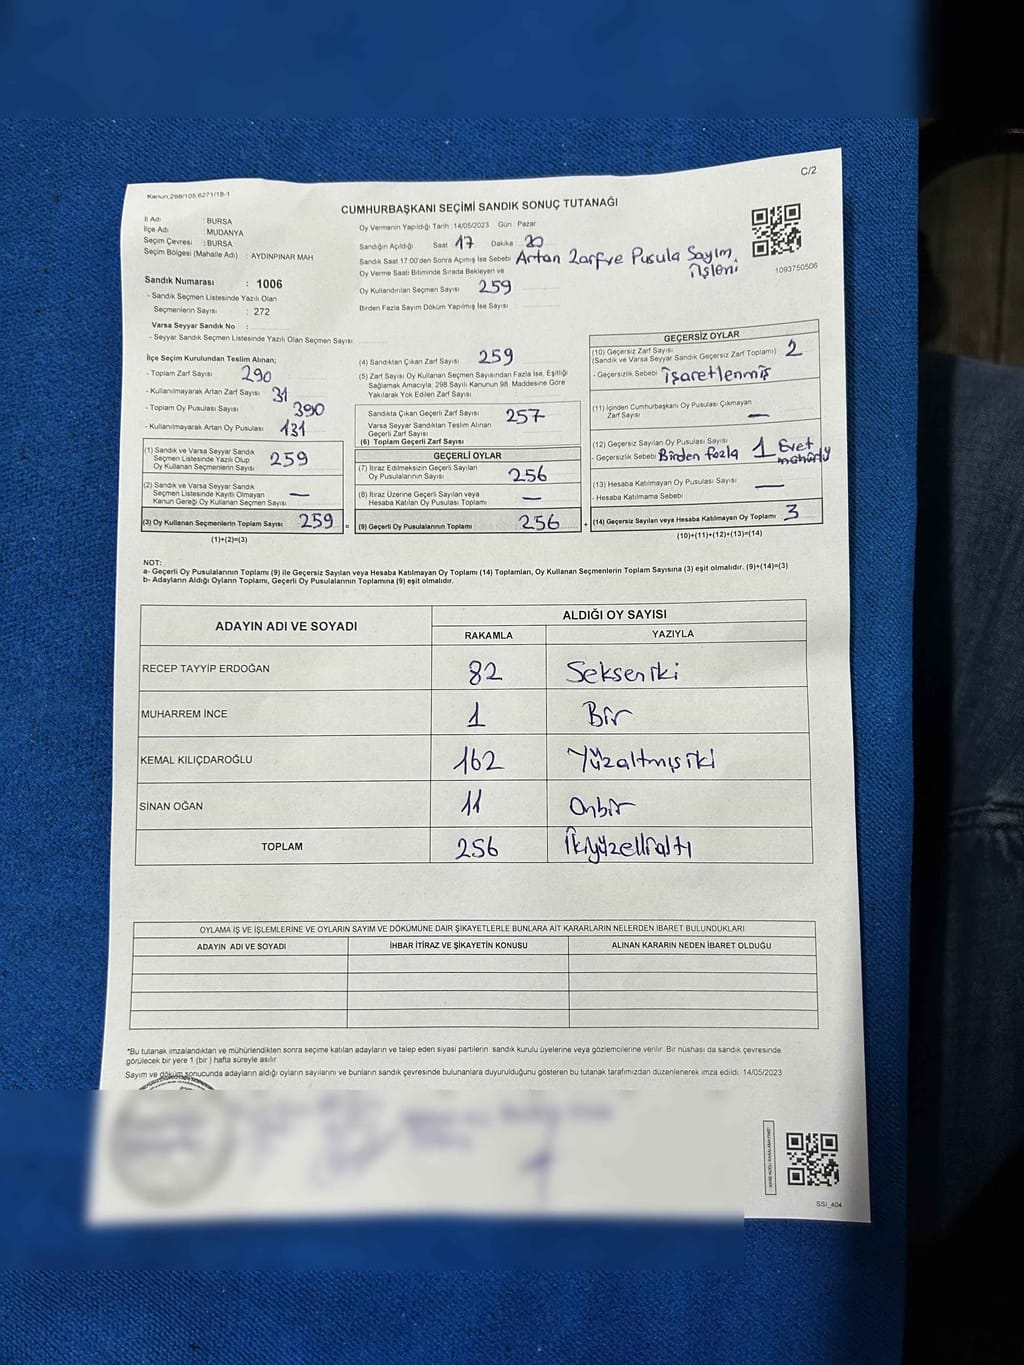 C/2
Kanun,298/105,6271/18-1
CUMHURBAŞKANI SEÇİMİ SANDIK SONUÇ TUTANAĞI
İl Adı : BURSA
İlçe Adı : MUDANYA
Seçim Çevresi : BURSA
Seçim Bölgesi (Mahalle Adı) : AYDINPINAR MAH
Oy Vermenin Yapıldığı Tarih : 14/05/2023 Gün : Pazar
Sandığın Açıldığı Saat 17 Dakika : 20
Sandık Saat 17:00'den Sonra Açılmış İse Sebebi Artan Zarf ve Pusula Sayım
işleni
Oy Verme Saati Bitiminde Sırada Bekleyen ve
Oy Kullandırılan Seçmen Sayısı 259
Birden Fazla Sayım Döküm Yapılmış İse Sayısı :
1093750506
Sandık Numarası : 1006
- Sandık Seçmen Listesinde Yazılı Olan
Seçmenlerin Sayısı : 272
Varsa Seyyar Sandık No :
- Seyyar Sandık Seçmen Listesinde Yazılı Olan Seçmen Sayısı:
İlçe Seçim Kurulundan Teslim Alınan;
- Toplam Zarf Sayısı 290
- Kullanılmayarak Artan Zarf Sayısı 31
- Toplam Oy Pusulası Sayısı 390
- Kullanılmayarak Artan Oy Pusulası 131
(1) Sandık ve Varsa Seyyar Sandık
Seçmen Listesinde Yazılı Olup
Oy Kullanan Seçmenlerin Sayısı 259
(2) Sandık ve Varsa Seyyar Sandık
Seçmen Listesinde Kayıtlı Olmayan
Kanun Gereği Oy Kullanan Seçmen Sayısı —
(3) Oy Kullanan Seçmenlerin Toplam Sayısı 259 =
(1)+(2)=(3)
(4) Sandıktan Çıkan Zarf Sayısı 259
(5) Zarf Sayısı Oy Kullanan Seçmen Sayısından Fazla İse, Eşitliği
Sağlamak Amacıyla, 298 Sayılı Kanunun 98. Maddesine Göre
Yakılarak Yok Edilen Zarf Sayısı
Sandıkta Çıkan Geçerli Zarf Sayısı 257
Varsa Seyyar Sandıktan Teslim Alınan
Geçerli Zarf Sayısı
(6) Toplam Geçerli Zarf Sayısı
GEÇERLİ OYLAR
(7) İtiraz Edilmeksizin Geçerli Sayılan
Oy Pusulalarının Sayısı 256
(8) İtiraz Üzerine Geçerli Sayılan veya
Hesaba Katılan Oy Pusulası Toplamı —
(9) Geçerli Oy Pusulalarının Toplamı 256 +
GEÇERSİZ OYLAR
(10) Geçersiz Zarf Sayısı
(Sandık ve Varsa Seyyar Sandık Geçersiz Zarf Toplamı) 2
- Geçersizlik Sebebi işaretlenmiş
(11) İçinden Cumhurbaşkanı Oy Pusulası Çıkmayan
Zarf Sayısı —
(12) Geçersiz Sayılan Oy Pusulası Sayısı 1 Evet
- Geçersizlik Sebebi Birden fazla mühürlü
(13) Hesaba Katılmayan Oy Pusulası Sayısı —
- Hesaba Katılmama Sebebi
(14) Geçersiz Sayılan veya Hesaba Katılmayan Oy Toplamı 3
(10)+(11)+(12)+(13)=(14)
NOT:
a- Geçerli Oy Pusulalarının Toplamı (9) ile Geçersiz Sayılan veya Hesaba Katılmayan Oy Toplamı (14) Toplamları, Oy Kullanan Seçmenlerin Toplam Sayısına (3) eşit olmalıdır. (9)+(14)=(3)
b- Adayların Aldığı Oyların Toplamı, Geçerli Oy Pusulalarının Toplamına (9) eşit olmalıdır.
ADAYIN ADI VE SOYADI ALDIĞI OY SAYISI
RAKAMLA YAZIYLA
RECEP TAYYİP ERDOĞAN 82 Sekseniki
MUHARREM İNCE 1 Bir
KEMAL KILIÇDAROĞLU 162 Yüzaltmışiki
SİNAN OĞAN 11 Onbir
TOPLAM 256 İkiyüzellialtı
OYLAMA İŞ VE İŞLEMLERİNE VE OYLARIN SAYIM VE DÖKÜMÜNE DAİR ŞİKAYETLERLE BUNLARA AİT KARARLARIN NELERDEN İBARET BULUNDUKLARI
ADAYIN ADI VE SOYADI İHBAR İTİRAZ VE ŞİKAYETİN KONUSU ALINAN KARARIN NEDEN İBARET OLDUĞU
*Bu tutanak imzalandıktan ve mühürlendikten sonra seçime katılan adayların ve talep eden siyasi partilerin sandık kurulu üyelerine veya gözlemcilerine verilir. Bir nüshası da sandık çevresinde
görülecek bir yere 1 (bir ) hafta süreyle asılır.
Sayım ve döküm sonucunda adayların aldığı oyların sayılarını ve bunların sandık çevresinde bulunanlara duyurulduğunu gösteren bu tutanak tarafımızdan düzenlenerek imza edildi. 14/05/2023
SSI_404